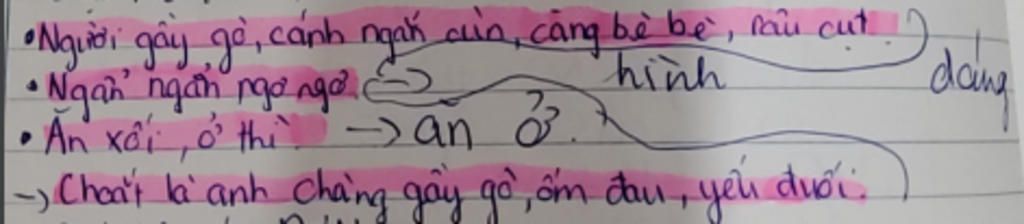 • Người gầy gò, cánh ngắn củn, càng bè bè, râu cụt
hình dáng
• Ngẩn ngẩn ngơ ngơ
• Ăn xổi, ở thì → ăn ở.
→ Choắt là anh chàng gầy gò, ốm đau, yếu đuối.